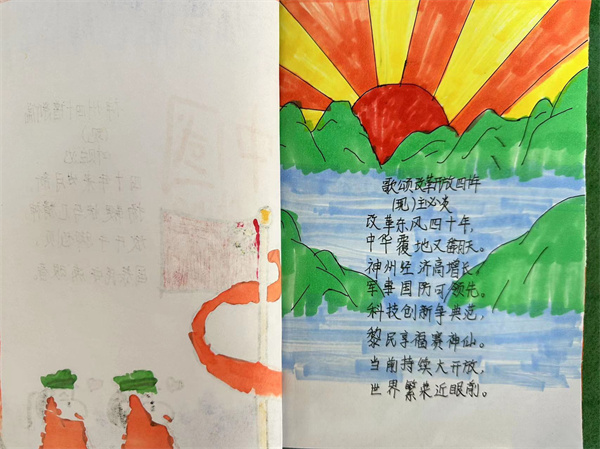 歌颂改革开放四十年
(现)王必亮
改革东风四十年,
中华覆地又翻天。
神州经济高增长,
军事国防可领先。
科技创新争典范,
黎民享福赛神仙。
当前持续大开放,
世界繁荣近眼前。